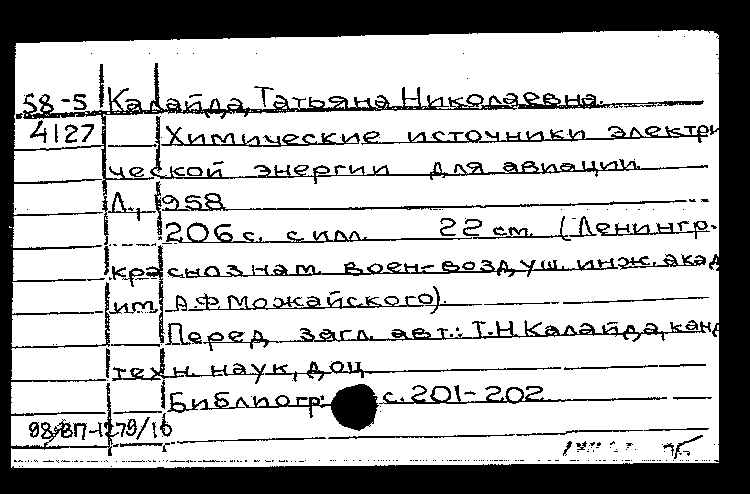 58-5 Калайда, Татьяна Николаевна.
4127 Химические источники электри
ческой энергии для авиации.
Л., 1958
206 с. с илл. 22 см. (Ленингр.
краснознам. воен-воздуш. инж. акад
им. А.Ф Можайского).
Перед загл. авт.: Т.Н. Калайда, канд
техн. наук, доц.
Библиогр: с. 201-202
98-ВП-1279/10